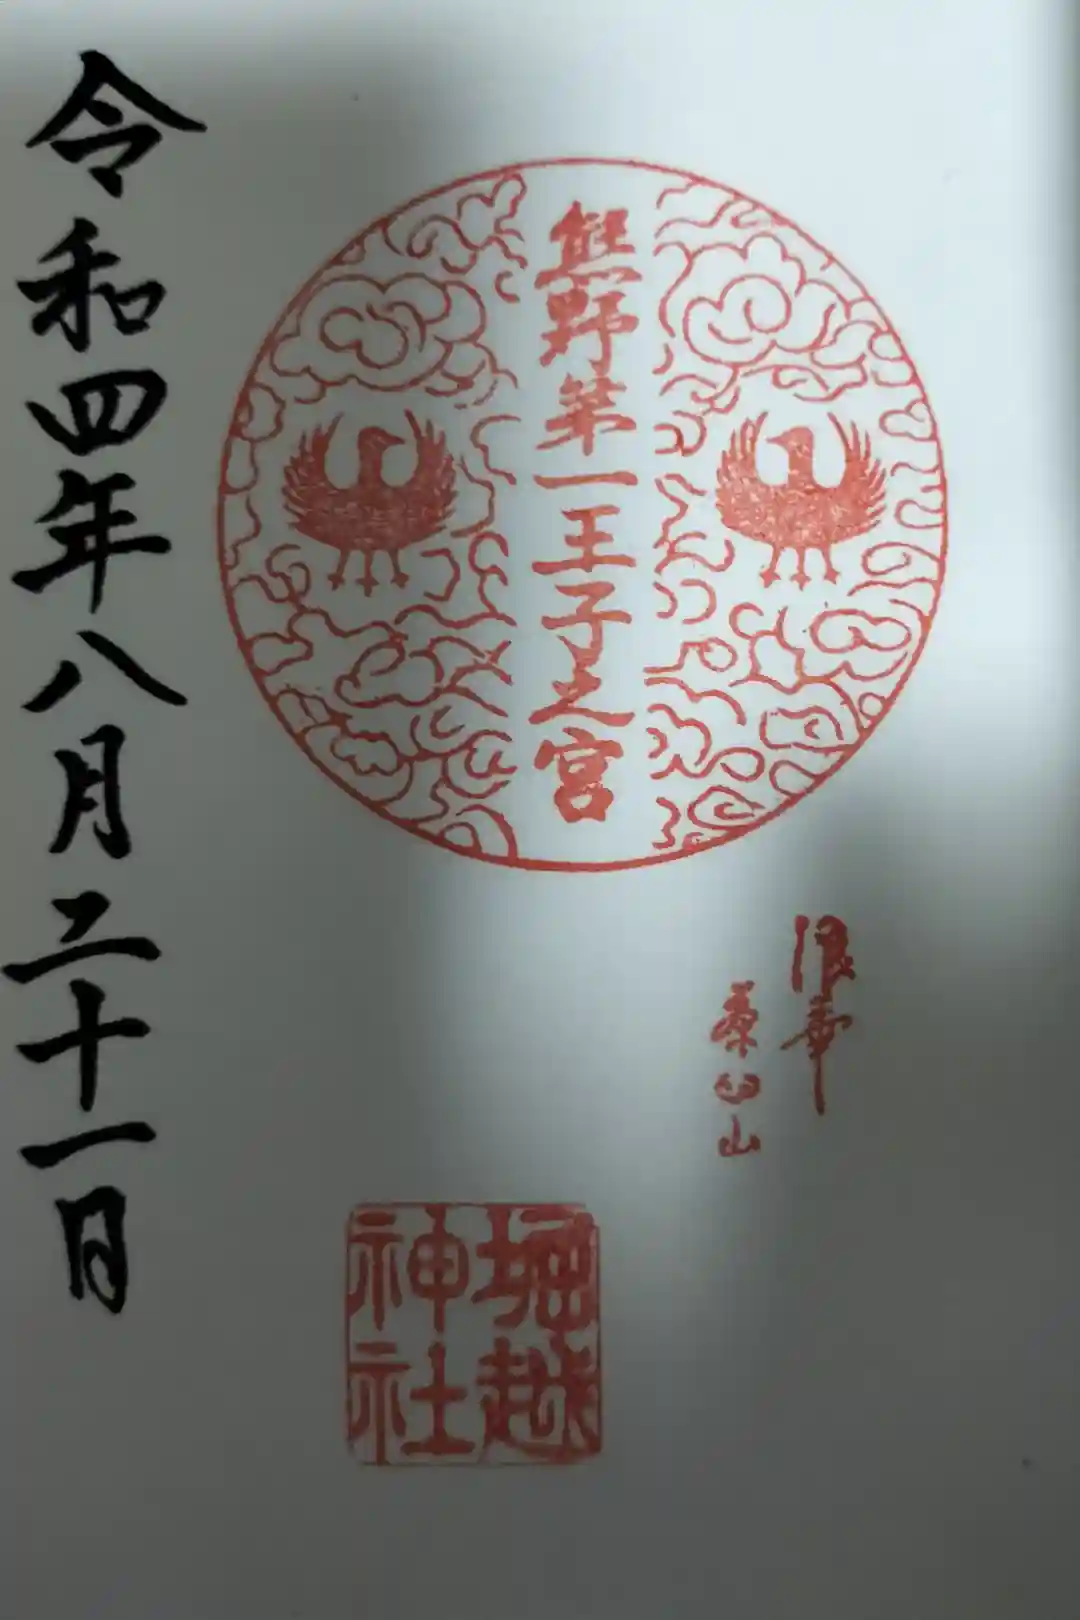 浪華
茶臼山
熊野第一王子之宮
堀越
神社
令和四年八月二十一日